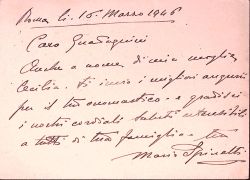 Roma li. 16. Marzo 1946
Caro Guadagnini
Anche a nome di mia moglie
Cecilia - ti invio i migliori auguri
per il tuo onomastico - e gradisci
i nostri cordiali saluti
a tutti di tua famiglia - tuo
Mario Spinetti